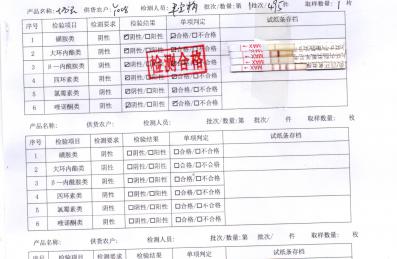 产品名称： 供货农户： 检测人员： 批次/数量：第1批次/ 取样数量：1 枚
序号 检验项目 检测要求 检验结果 单项判定 试纸条存档
1 磺胺类 阴性 ☑阴性/□阳性 ☑合格/□不合格
2 大环内酯类 阴性 ☑阴性/□阳性 ☑合格/□不合格
3 β一内酰胺类 阴性 ☑阴性/□阳性 ☑合格/□不合格
4 四环素类 阴性 ☑阴性/□阳性 ☑合格/□不合格
5 氯霉素类 阴性 ☑阴性/□阳性 ☑合格/□不合格
6 喹诺酮类 阴性 ☑阴性/□阳性 ☑合格/□不合格
检测合格
MAX
MAX
MAX
产品名称： 供货农户： 检测人员： 批次/数量：第 批次/ 取样数量： 枚
序号 检验项目 检测要求 检验结果 单项判定 试纸条存档
1 磺胺类 阴性 □阴性/□阳性 □合格/□不合格
2 大环内酯类 阴性 □阴性/□阳性 □合格/□不合格
3 β一内酰胺类 阴性 □阴性/□阳性 □合格/□不合格
4 四环素类 阴性 □阴性/□阳性 □合格/□不合格
5 氯霉素类 阴性 □阴性/□阳性 □合格/□不合格
6 喹诺酮类 阴性 □阴性/□阳性 □合格/□不合格
产品名称： 供货农户： 检测人员： 批次/数量：第 批次/ 取样数量： 枚
序号 检验项目 检测要求 检验结果 单项判定 试纸条存档